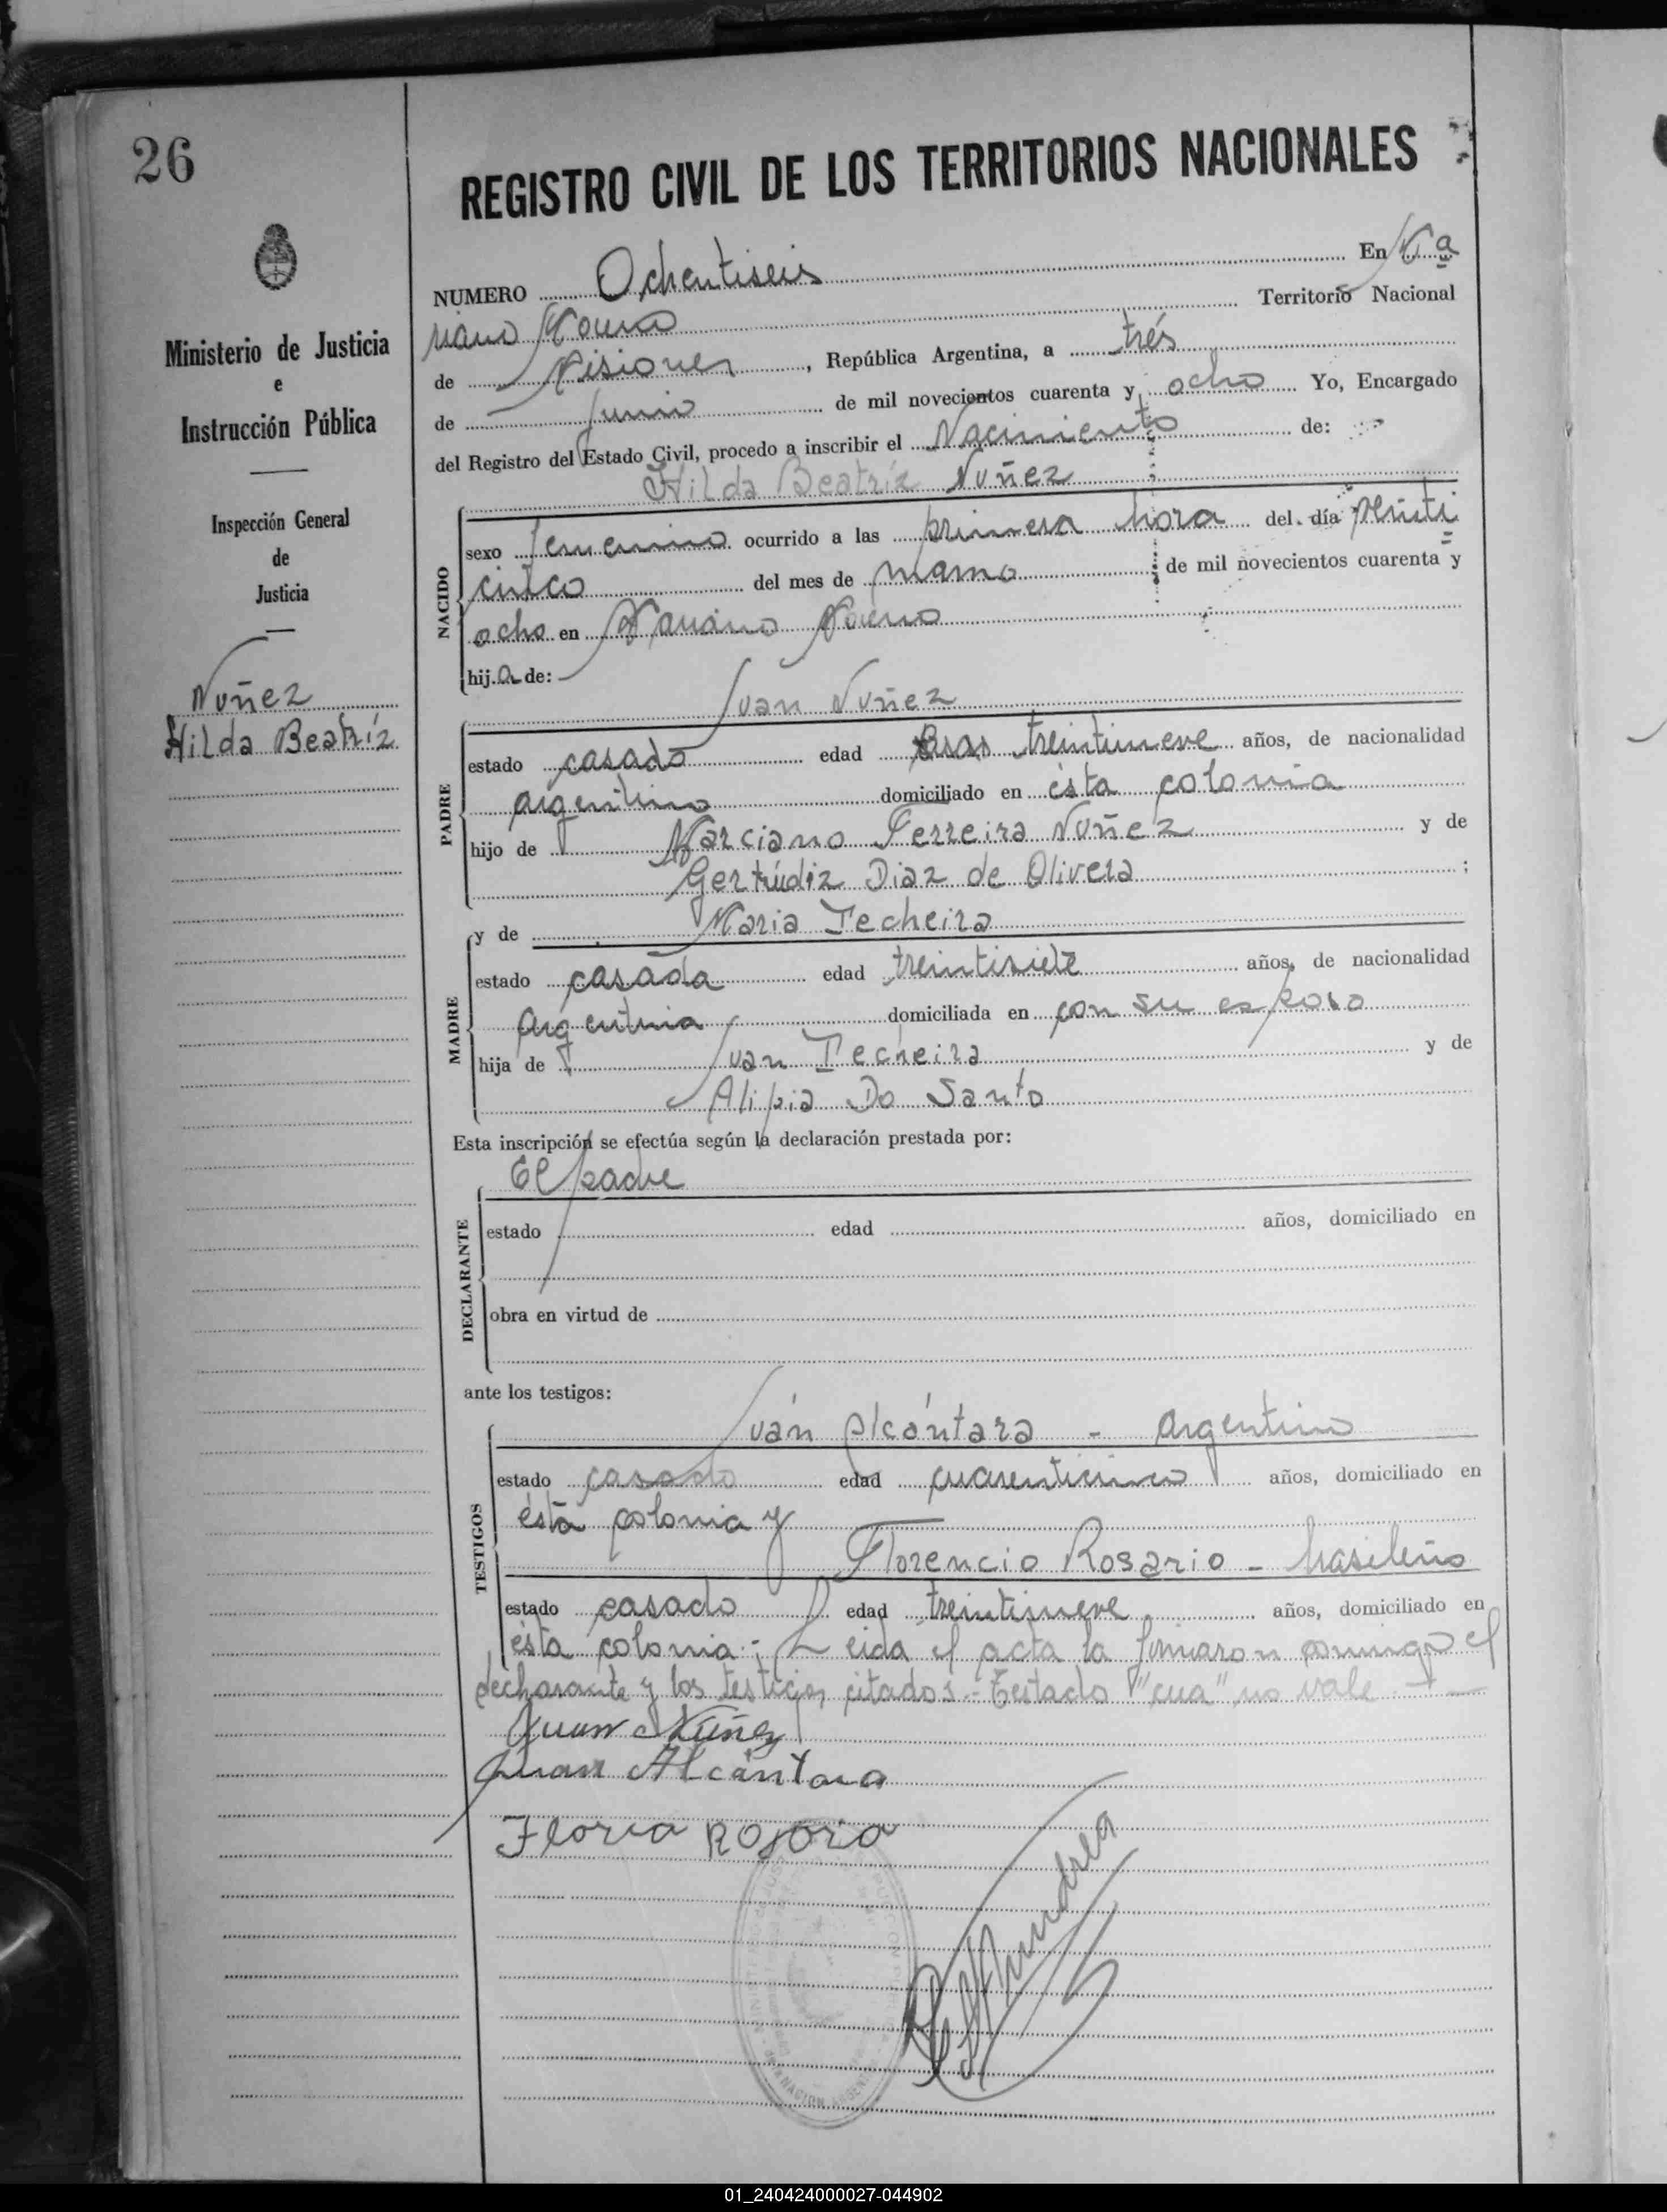 26
Ministerio de Justicia
e
Instrucción Pública
Inspección General
de
Justicia
Nuñez
Hilda Beatríz
REGISTRO CIVIL DE LOS TERRITORIOS NACIONALES
NUMERO Ochentiseis En Ma
riano Moreno Territorio Nacional
de Misiones, República Argentina, a trés
de junio de mil novecientos cuarenta y ocho Yo, Encargado
del Registro del Estado Civil, procedo a inscribir el Nacimiento de:
Hilda Beatríz Nuñez
NACIDO
sexo femenino ocurrido a las primera hora del día veinti
cinco del mes de marzo de mil novecientos cuarenta y
ocho en Mariano Moreno
hija de:
Juan Nuñez
PADRE
estado casado edad treintinueve años, de nacionalidad
argentino domiciliado en ésta colonia
hijo de Marciano Ferreira Nuñez y de
Gertrúdiz Diaz de Olivera ;
y de Maria Techeira
MADRE
estado casada edad treintisiete años, de nacionalidad
argentina domiciliada en con su esposo
hija de Juan Techeira y de
Alipia Do Santo
Esta inscripción se efectúa según la declaración prestada por:
El padre
DECLARANTE
estado edad años, domiciliado en
obra en virtud de
ante los testigos:
TESTIGOS
Juán Alcántara - argentino
estado casado edad cuarenticinco años, domiciliado en
ésta colonia y
Florencio Rosario - brasileño
estado casado edad treintinueve años, domiciliado en
ésta colonia.- Leida el acta la firmaron conmigo el
declarante y los testigos citados.- Testado "cua" no vale
Juan Núñez
Juan Alcántara
Floria Rosoria
01_240424000027-044902